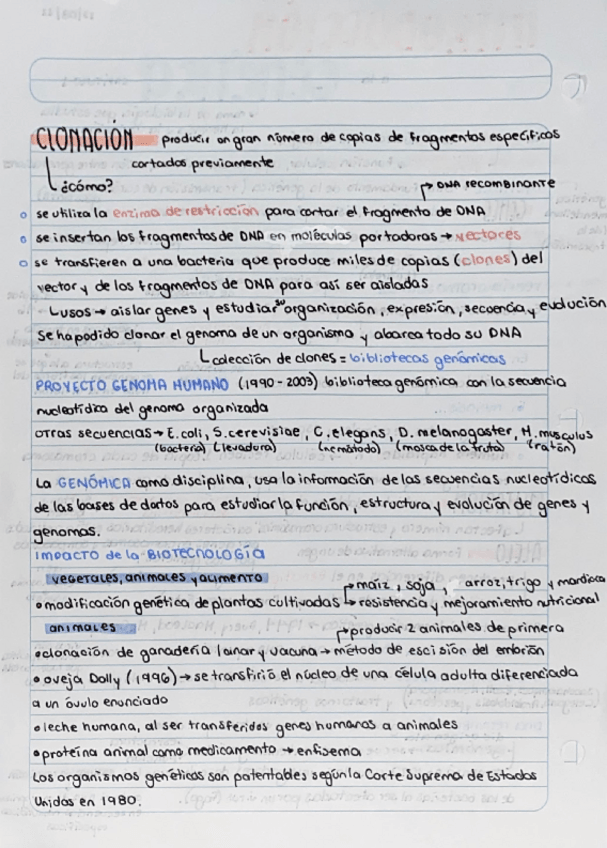 CLONACIÓN producir un gran número de copias de fragmentos específicos
cortados previamente
¿cómo?
→ DNA recombinante
se utiliza la enzima de restricción para cortar el fragmento de DNA
se insertan los fragmentos de DNA en moléculas portadoras → vectores
se transfieren a una bacteria que produce miles de copias (clones) del
vector y de los fragmentos de DNA para así ser aisladas
usos → aislar genes y estudiar su organización, expresión, secuencia y evolución
se ha podido clonar el genoma de un organismo y abarca todo su DNA
colección de clones = bibliotecas genómicas
PROYECTO GENOMA HUMANO (1990-2003) biblioteca genómica con la secuencia
nucleotídica del genoma organizada
otras secuencias → E. coli, S. cerevisiae, C. elegans, D. melanogaster, M. musculus
(bacteria) (levadura) (nemátodo) (mosca de la fruta) (ratón)
La GENÓMICA como disciplina, usa la información de las secuencias nucleotídicas
de las bases de datos para estudiar la función, estructura y evolución de genes y
genomas.
IMPACTO de la BIOTECNOLOGÍA
vegetales, animales y aumento
→ maíz, soja, arroz, trigo y mandioca
• modificación genética de plantas cultivadas → resistencia y mejoramiento nutricional
animales
→ producir 2 animales de primera
• clonación de ganadería lanar y vacuna → método de escisión del embrión
• oveja Dolly (1996) → se transfirió el núcleo de una célula adulta diferenciada
a un óvulo enunciado
• leche humana, al ser transferidos genes humanos a animales
• proteína animal como medicamento → enfisema
Los organismos genéticos son patentables según la Corte Suprema de Estados
Unidos en 1980.